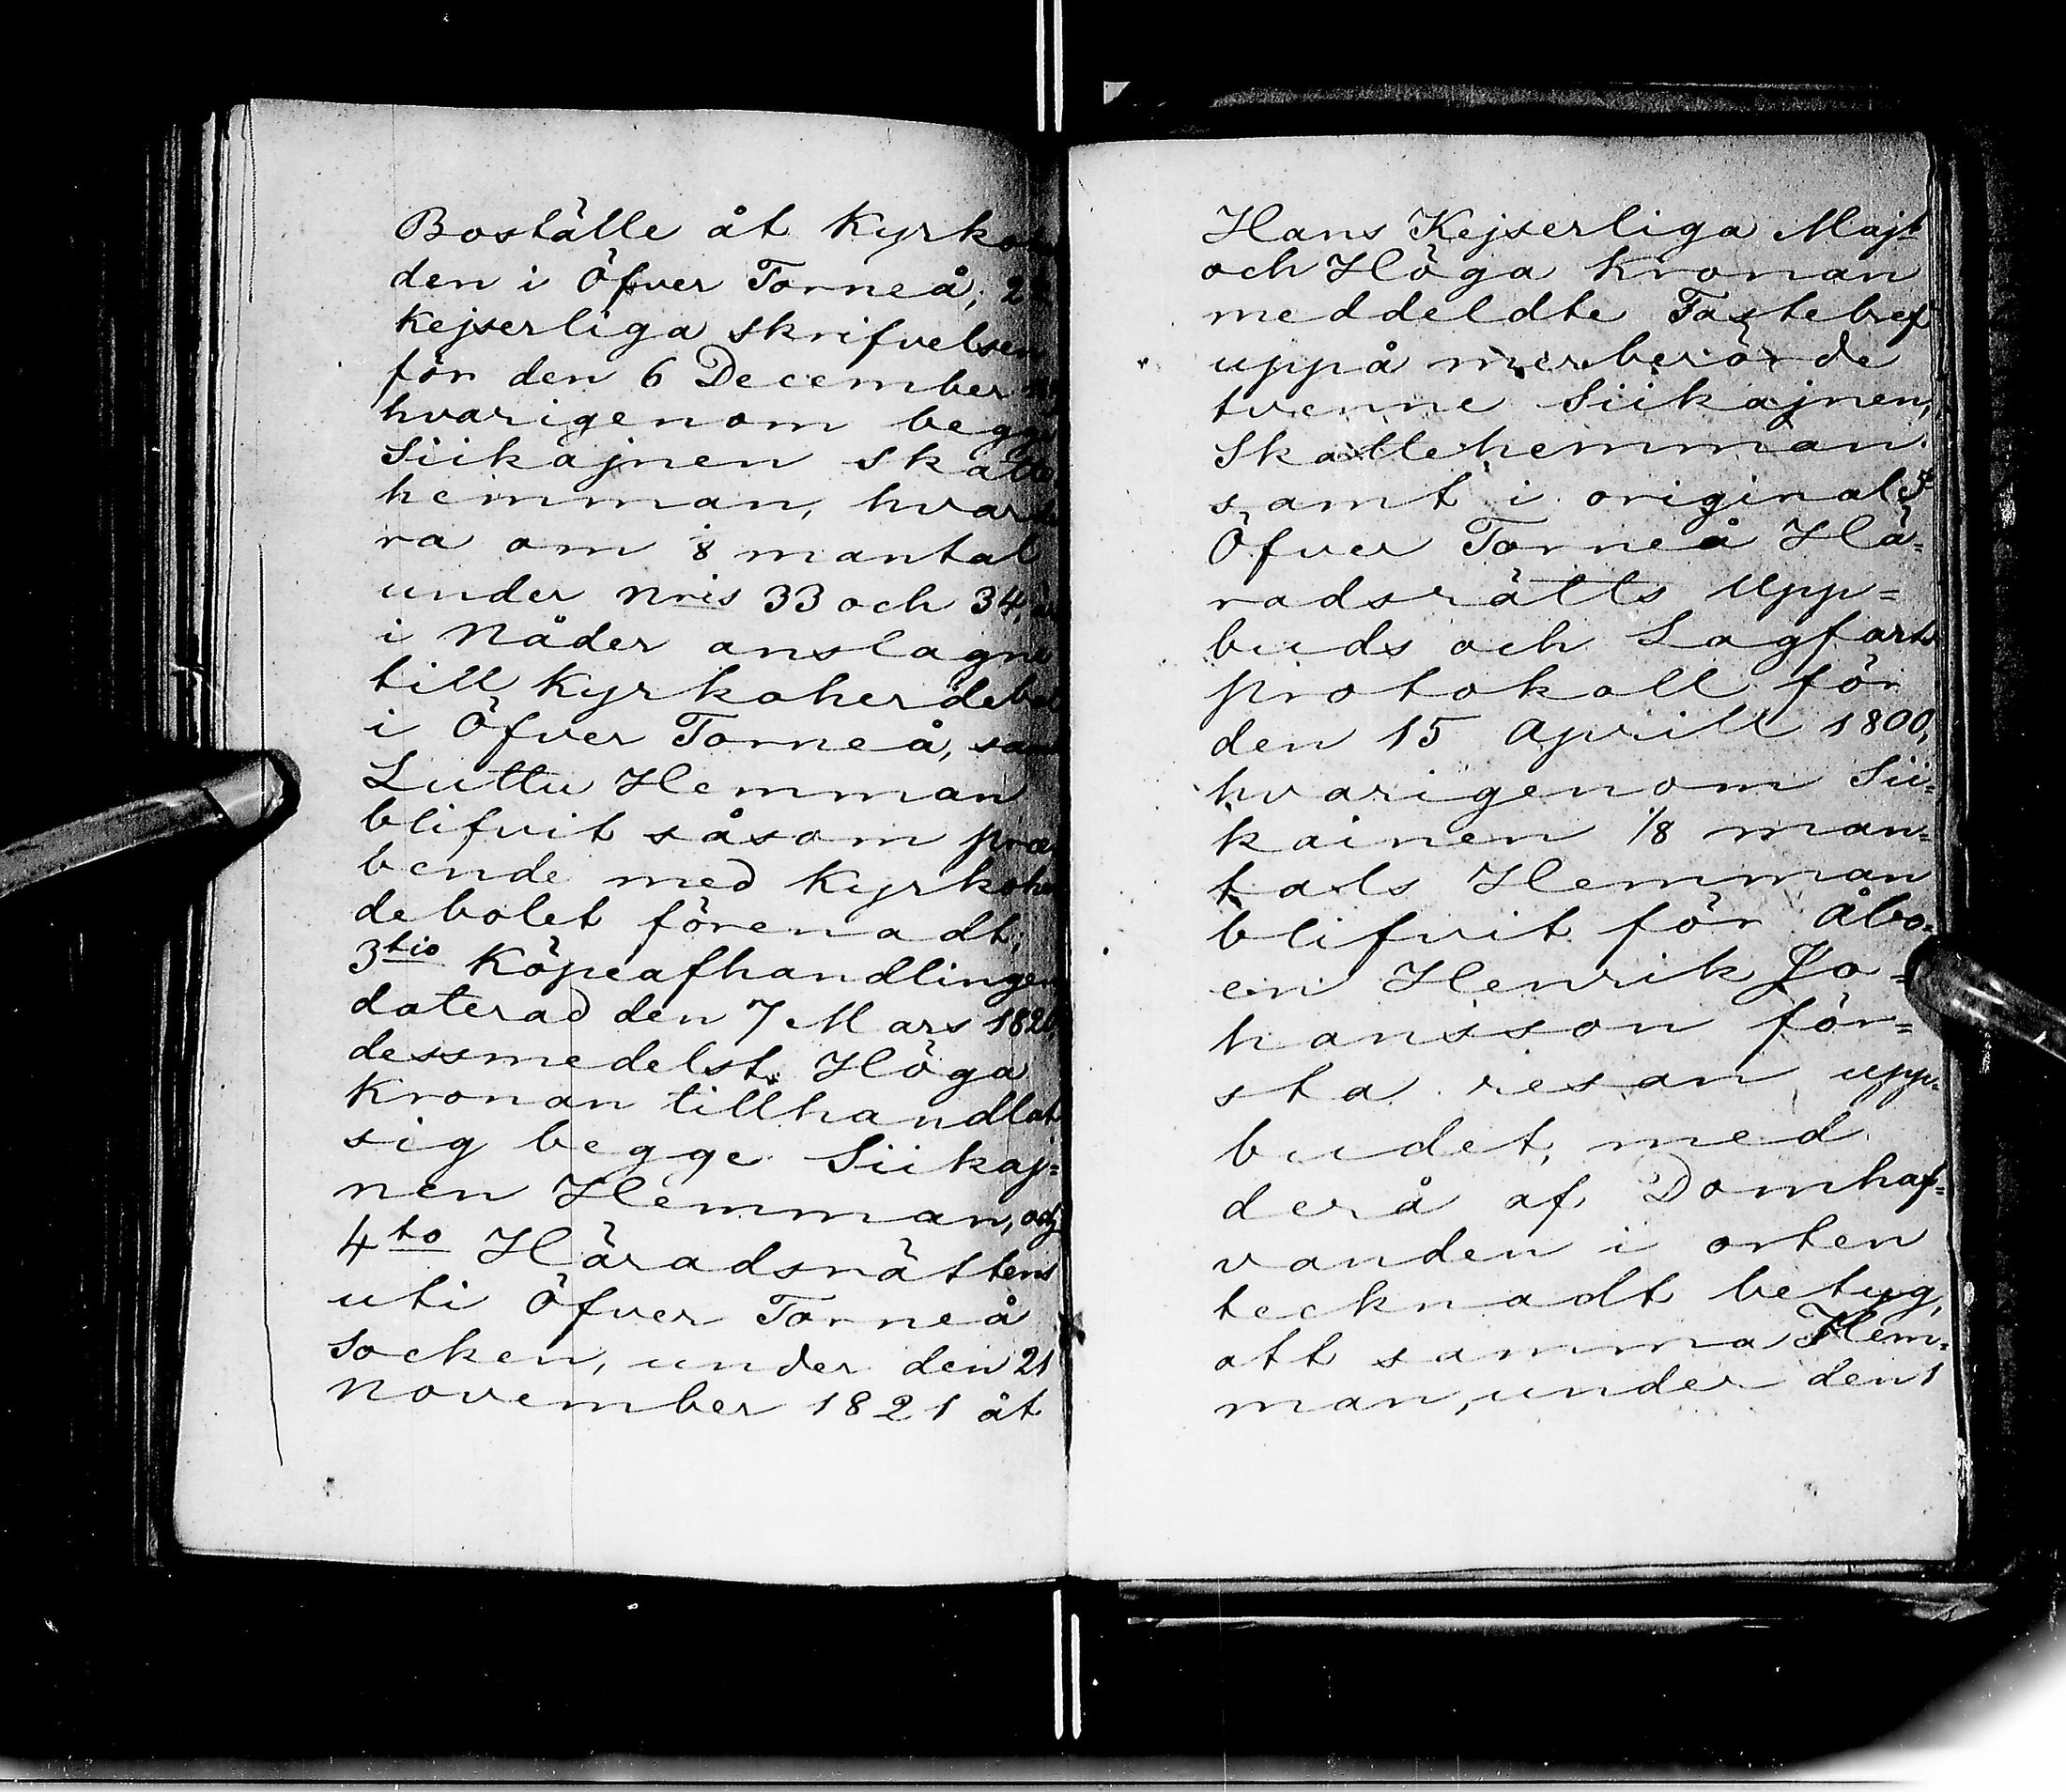 Boställe åt Kyrko
den i Öfver Torneå; 2
Kejserliga skrifvelsen
för den 6 December
hvarigenom begge
Siikajnen skatte
hemman, hvart
ra om 1/8 mantal
under Nris 33 och 34,
i Nåder anslagne
till Kyrkoherdebol
i Öfver Torneå, samt
Luttu Hemman
blifvit såsom præ
bende med Kyrkoher
debolet förenadt;
3tio Köpeafhandlingen
daterad den 7 Mars 182
dessmedelst Höga
Kronan tillhandlat
sig begge Siikaj=
nen Hemman, och
4to Häradsrättens
uti Öfver Torneå
Socken, under den 21
November 1821 åt
Hans Kejserliga Majt
och Höga Kronan
meddeldte Fastebref
uppå merberörde
tvenne Siikajnen,
Skattehemman
samt i original 5
Öfver Torneå Hä=
radsrätts Upp=
buds och Lagfarts
protokoll för
den 15 Aprill 1800,
hvarigenom Sii=
kainen 1/8 man=
tals Hemman
blifvit för Åbo=
en Henrik Jo=
hansson för=
sta resan upp=
budet, med
derå af Domhaf=
vanden i orten
tecknadt betyg,
att samma Hem=
man, under den 1